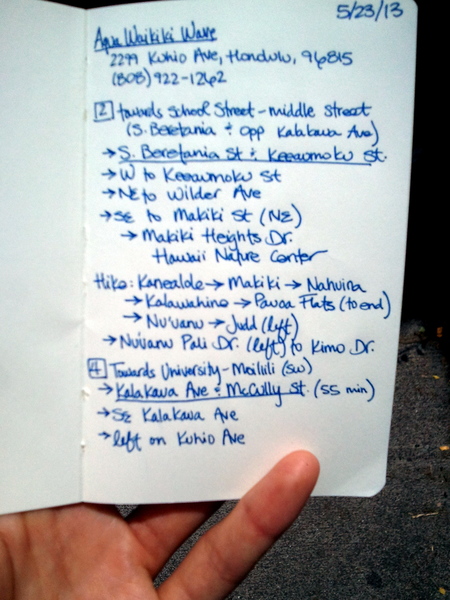 5/23/13
Aqua Waikiki Wave
2299 Kuhio Ave, Honolulu, 96815
(808) 922-1262
2 towards School Street - middle street
(S. Beretania + opp Kalakawa Ave)
→ S. Beretania St + Keeaumoku St.
→ W to Keeaumoku St
→ NE to Wilder Ave
→ SE to Makiki St (NE)
→ Makiki Heights Dr.
Hawaii Nature Center
Hike: Kanealole → Makiki → Nahuina
→ Kalawahine → Pauoa Flats (to end)
→ Nu'uanu → Judd (left)
→ Nu'uanu Pali Dr. (left) to Kimo Dr.
4 Towards University - Moilili (SW)
→ Kalakawa Ave + McCully St. (55 min)
→ SE Kalakawa Ave
→ left on Kuhio Ave